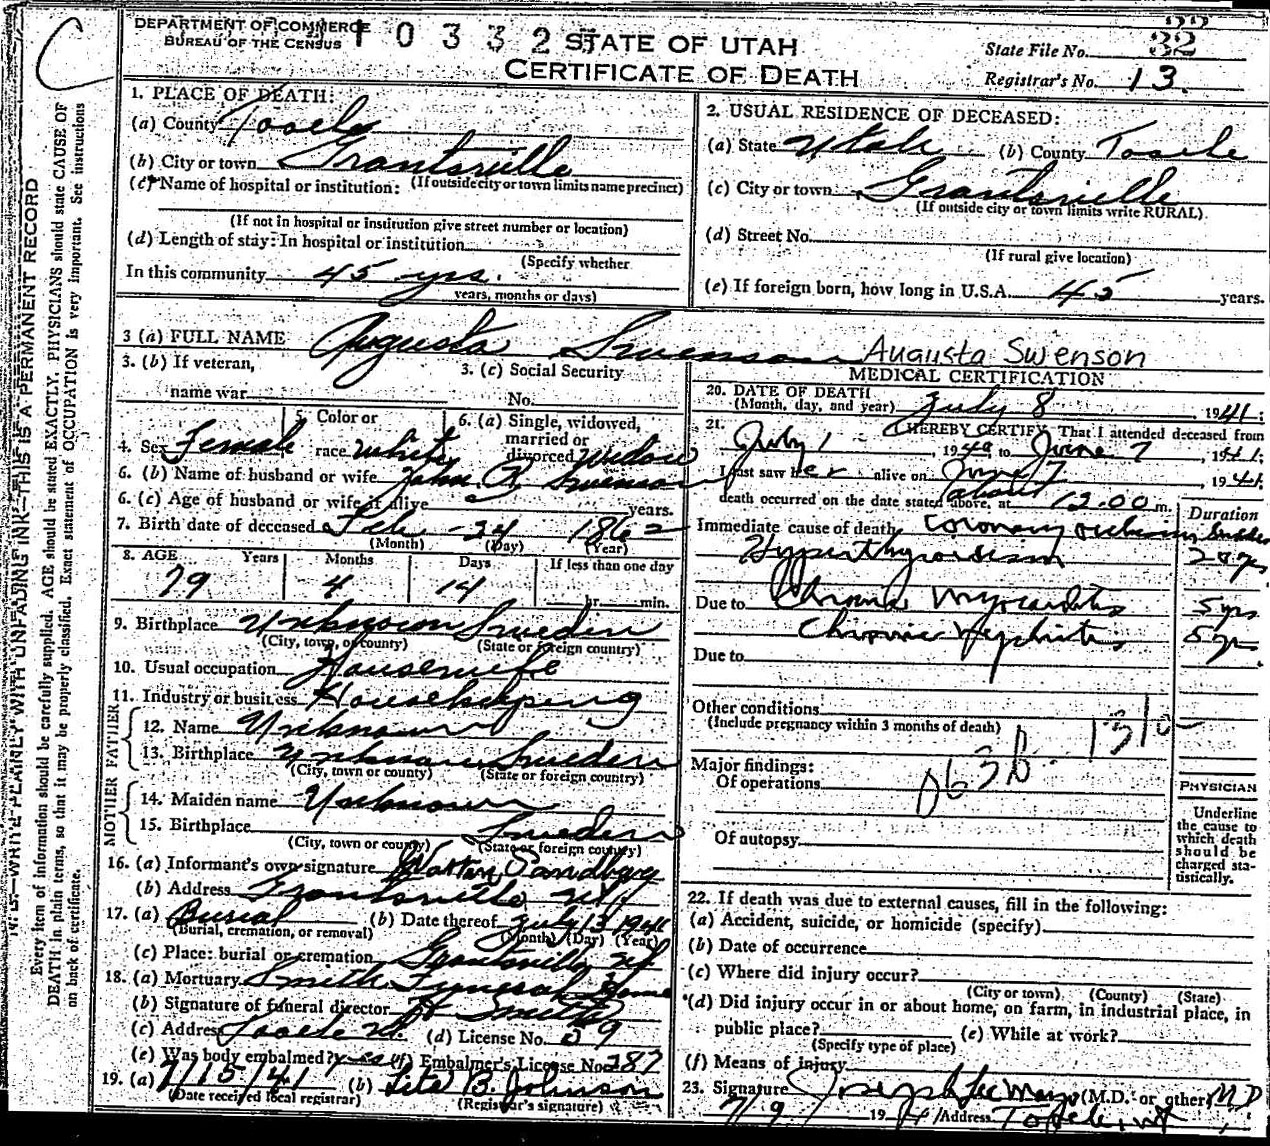 DEPARTMENT OF COMMERCE
BUREAU OF THE CENSUS
10332
STATE OF UTAH
CERTIFICATE OF DEATH
State File No. 32
Registrar's No. 13.
N. B.—WRITE PLAINLY WITH UNFADING INK—THIS IS A PERMANENT RECORD
Every item of information should be carefully supplied. AGE should be stated EXACTLY. PHYSICIANS should state CAUSE OF
DEATH in plain terms, so that it may be properly classified. Exact statement of OCCUPATION is very important. See instructions
on back of certificate.
1. PLACE OF DEATH:
(a) County Tooele
(b) City or town Grantsville
(If outside city or town limits name precinct)
(c) Name of hospital or institution:
(If not in hospital or institution give street number or location)
(d) Length of stay: In hospital or institution
(Specify whether
In this community 45 yrs.
years, months or days)
2. USUAL RESIDENCE OF DECEASED:
(a) State Utah (b) County Tooele
(c) City or town Grantsville
(If outside city or town limits write RURAL)
(d) Street No.
(If rural give location)
(e) If foreign born, how long in U.S.A. 45 years.
3 (a) FULL NAME Augusta Swenson Augusta Swenson
3. (b) If veteran,
name war
3. (c) Social Security
No.
4. Sex Female
5. Color or
race White
6. (a) Single, widowed,
married or
divorced Widow
6. (b) Name of husband or wife John P. Swenson
6. (c) Age of husband or wife if alive years.
7. Birth date of deceased Feb - 24 1862
(Month) (Day) (Year)
8. AGE Years Months Days If less than one day
79 4 14 hr. min.
9. Birthplace Unknown Sweden
(City, town, or county) (State or foreign country)
10. Usual occupation Housewife
11. Industry or business Housekeeping
FATHER
12. Name Unknown
13. Birthplace Unknown Sweden
(City, town or county) (State or foreign country)
MOTHER
14. Maiden name Unknown
15. Birthplace Sweden
(City, town or county) (State or foreign country)
16. (a) Informant's own signature Sandberg
(b) Address Grantsville Ut
17. (a) Burial (b) Date thereof July 13 1941
(Burial, cremation, or removal) (Month) (Day) (Year)
(c) Place: burial or cremation Grantsville Ut
18. (a) Mortuary Smith Funeral Home
(b) Signature of funeral director Smith
(c) Address Tooele Ut. (d) License No. 59
(e) Was body embalmed? yes (f) Embalmer's License No. 287
19. (a) 7/15/41 (b) B. Johnson
(Date received local registrar) (Registrar's signature)
MEDICAL CERTIFICATION
20. DATE OF DEATH
(Month, day, and year) July 8, 1941.
21. I HEREBY CERTIFY, That I attended deceased from
July 1, 1940 to June 7, 1941;
I last saw her alive on June 7, 1941
death occurred on the date stated above, at about 12.00 m.
Duration
Immediate cause of death Coronary occlusion Sudden
Hyperthyroidism 20 yrs
Due to Chronic Myocarditis 5 yrs
Chronic Nephritis 5 yrs
Due to
Other conditions
(Include pregnancy within 3 months of death)
131a
Major findings:
Of operations
063b
Of autopsy
PHYSICIAN
Underline
the cause to
which death
should be
charged sta-
tistically.
22. If death was due to external causes, fill in the following:
(a) Accident, suicide, or homicide (specify)
(b) Date of occurrence
(c) Where did injury occur?
(City or town) (County) (State)
(d) Did injury occur in or about home, on farm, in industrial place, in
public place? (e) While at work?
(Specify type of place)
(f) Means of injury
23. Signature Joseph (M.D. or other) M D
7/9 1941 Address Tooele, Ut